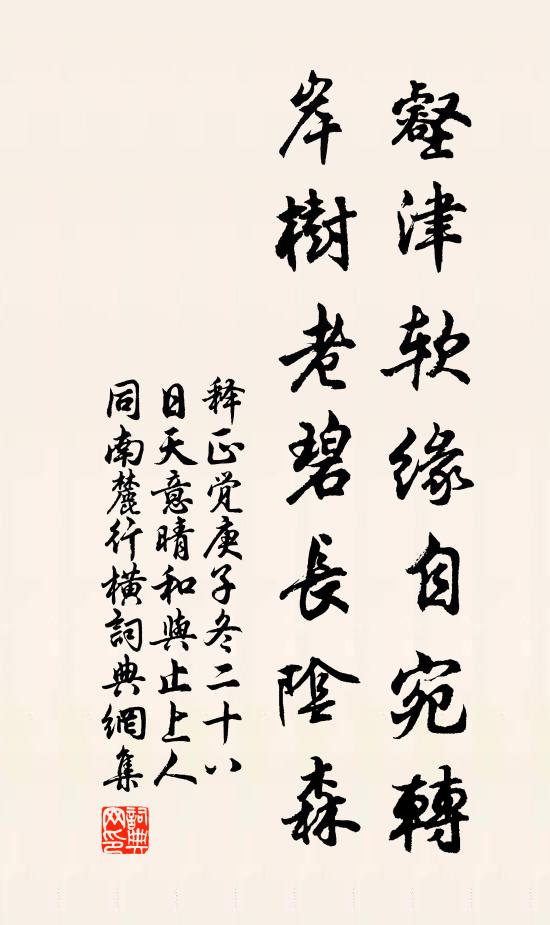 壑津软緣自宛轉
岸樹老碧長陰森
释正覺庚子冬二十八
日天意晴和與止上人
同南麓行橫詞典網集
詞典网印